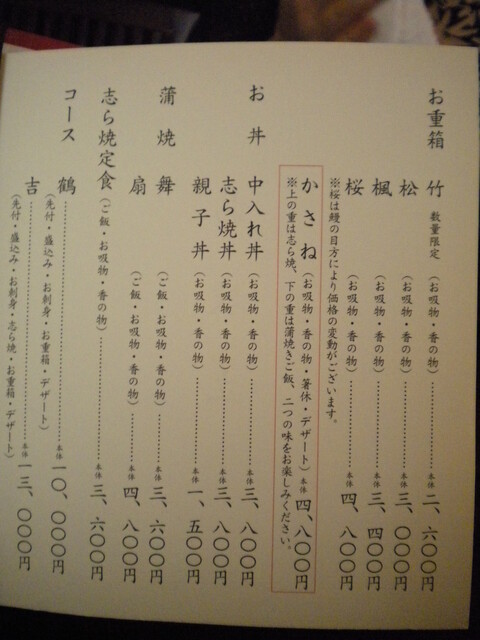 お重箱 竹 数量限定（お吸物・香の物）………本体二、六〇〇円
松（お吸物・香の物）………本体三、〇〇〇円
楓（お吸物・香の物）………本体三、四〇〇円
桜（お吸物・香の物）………本体四、八〇〇円
※桜は鰻の目方により価格の変動がございます。
かさね（お吸物・香の物・箸休・デザート）本体四、八〇〇円
※上の重は志ら焼、下の重は蒲焼きご飯、二つの味をお楽しみください。
お丼 中入れ丼（お吸物・香の物）………本体三、八〇〇円
志ら焼丼（お吸物・香の物）………本体三、八〇〇円
親子丼（お吸物・香の物）………本体一、五〇〇円
蒲焼 舞（ご飯・お吸物・香の物）………本体三、六〇〇円
扇（ご飯・お吸物・香の物）………本体四、八〇〇円
志ら焼定食（ご飯・お吸物・香の物）………本体三、六〇〇円
コース 鶴………本体一〇、〇〇〇円
（先付・盛込み・お刺身・お重箱・デザート）
吉………本体一三、〇〇〇円
（先付・盛込み・お刺身・志ら焼・お重箱・デザート）